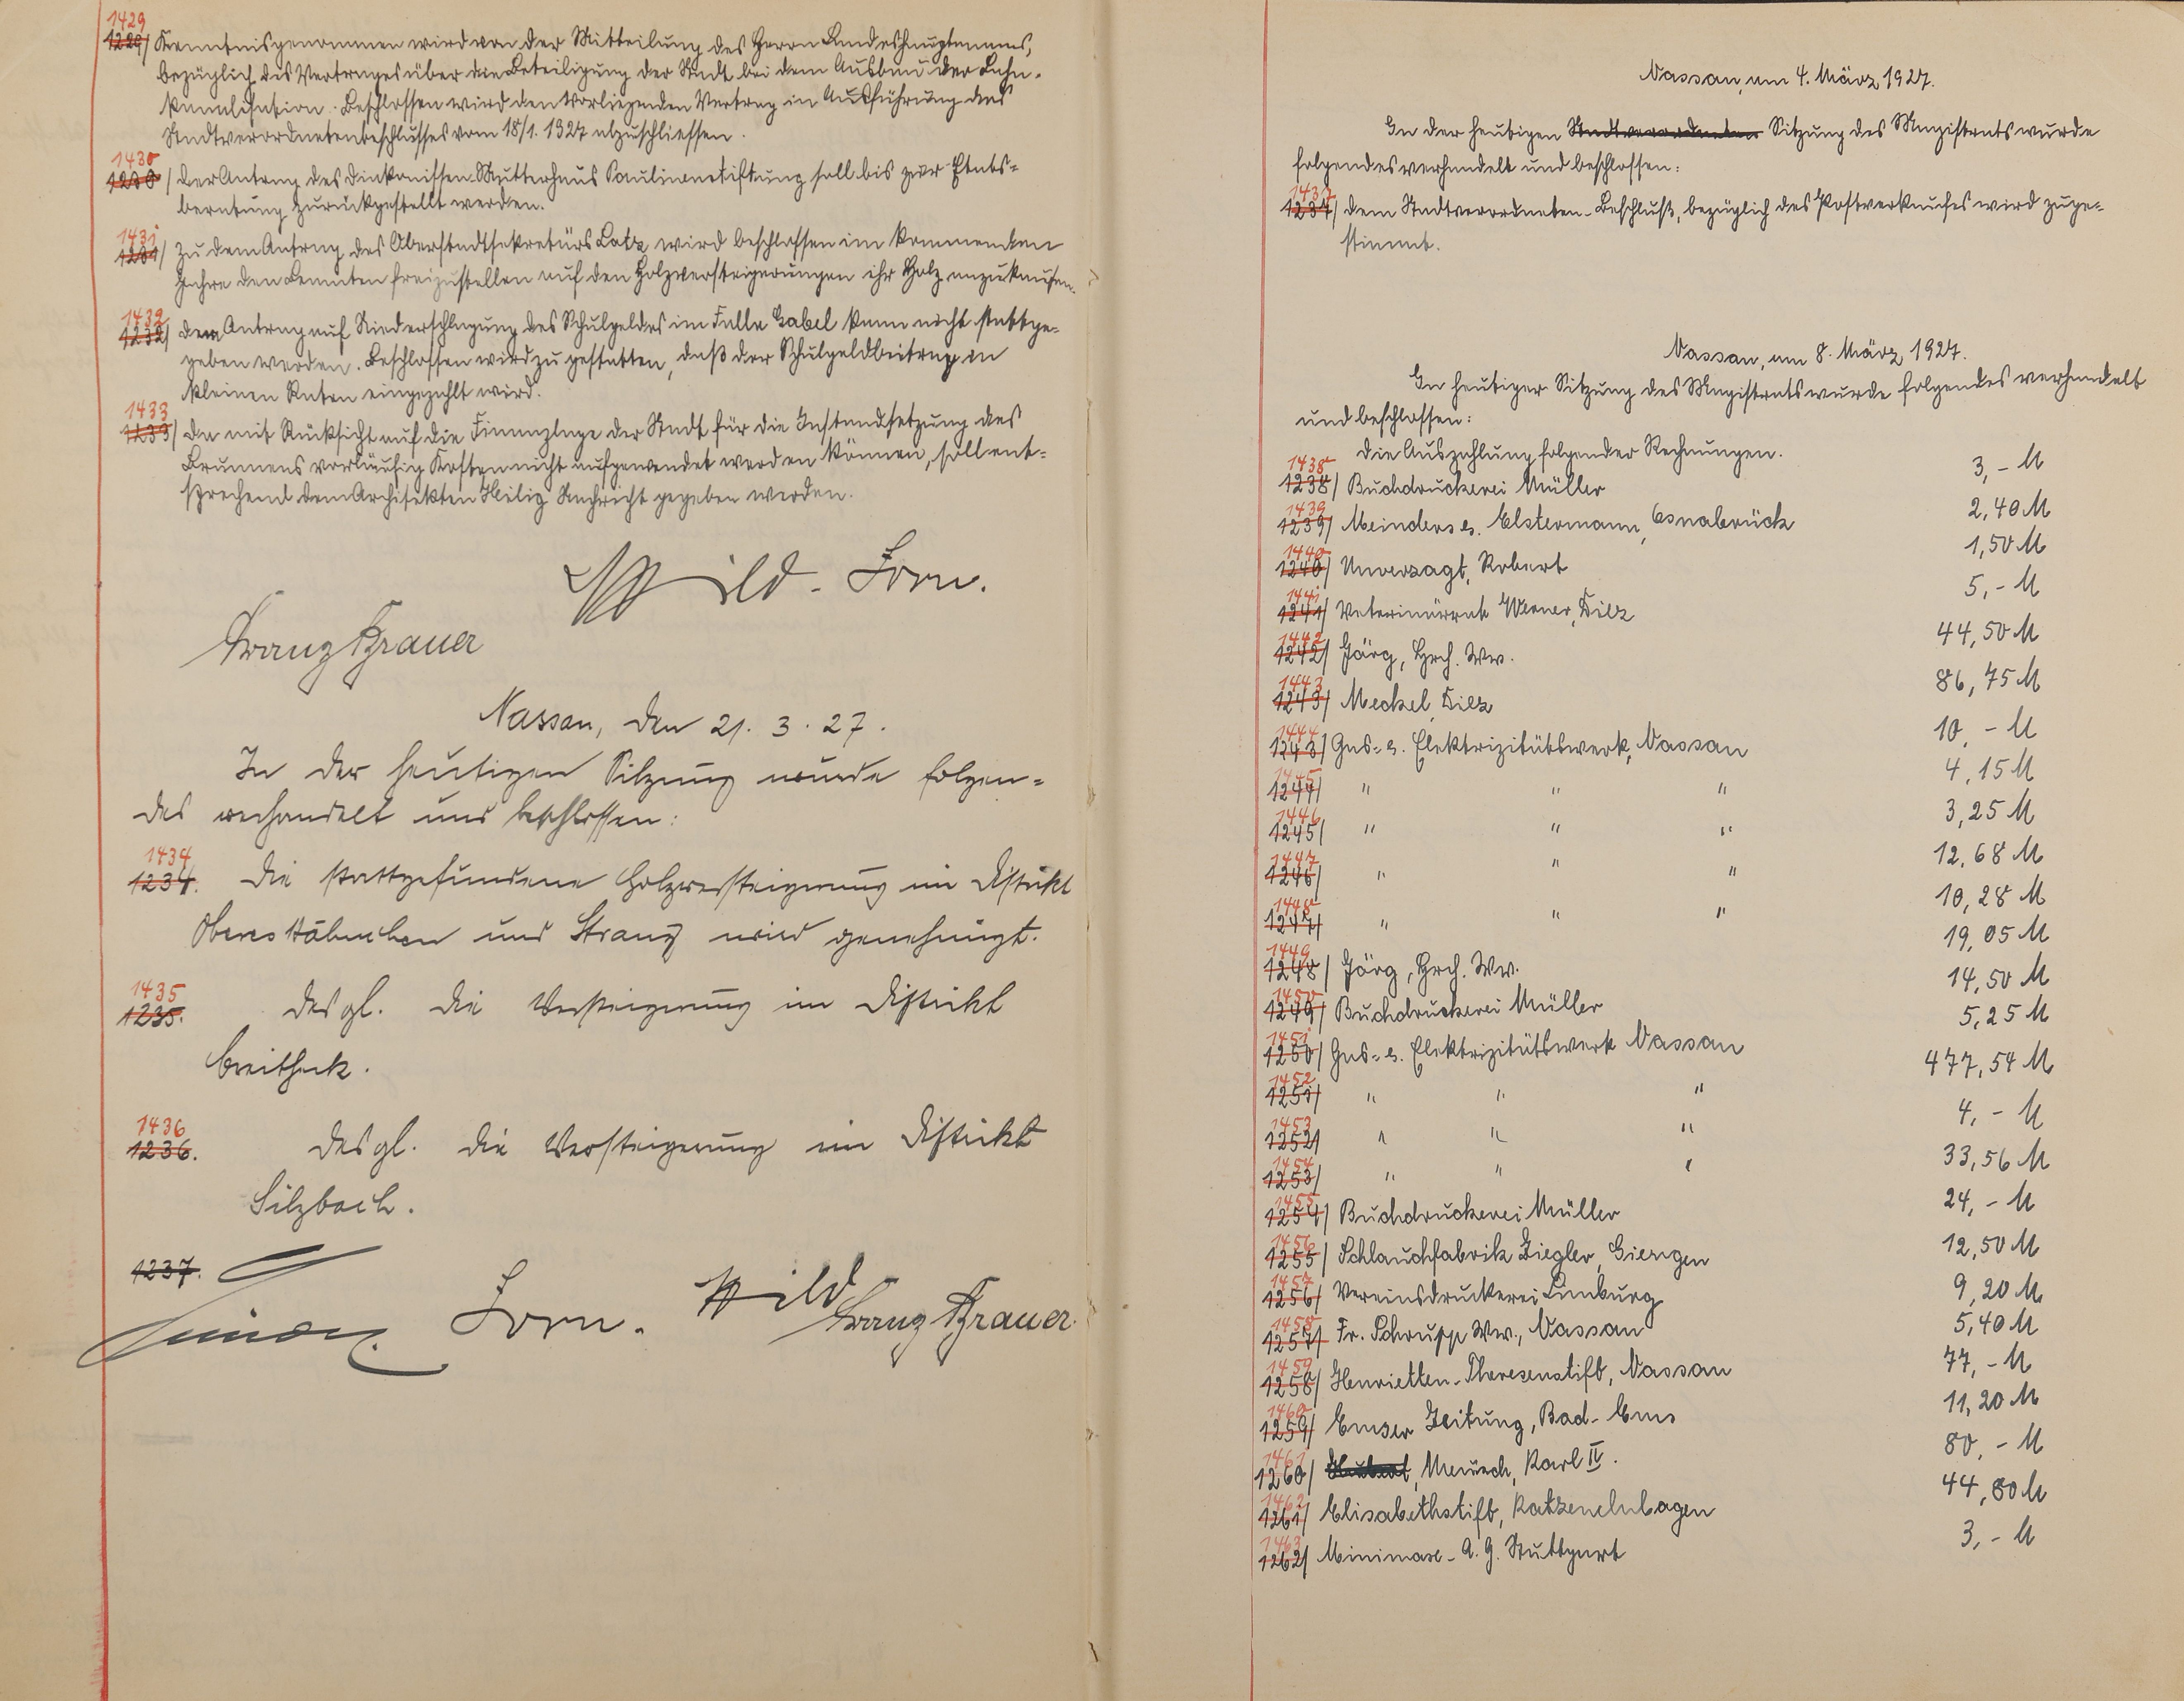 1429
1229/ Kenntnisgenommen wird von der Mitteilung des Herrn Landeshauptmanns,
bezüglich des Vertrages über die Beteiligung der Stadt bei dem Ausbau der Lahn-
kanalisation. Beschlossen wird den vorliegenden Vertrag in Ausführung des
Stadtverordnetenbeschlusses vom 18/1. 1927 abzuschliessen.
1430
1230/ Der Antrag des Diakonissen-Mutterhaus Paulinenstiftung soll bis zur Etats-
beratung zurückgestellt werden.
1431
1231/ Zu dem Antrag des Oberstadtsekretärs Latz wird beschlossen im kommenden
Jahre den Beamten freizustellen auf den Holzversteigerungen ihr Holz anzukaufen.
1432
1232/ Dem Antrag auf Niederschlagung des Schulgeldes im Falle Gabel kann nicht stattge-
geben werden. Beschlossen wird zu gestatten, daß der Schulgeldbeitrag in
kleinen Raten eingezahlt wird.
1433
1233/ Da mit Rücksicht auf die Finanzlage der Stadt für die Instandsetzung des
Brunnens vorläufig Kosten nicht aufgewendet werden können, soll ent-
sprechend dem Architekten Heilig Nachricht gegeben werden.
Wild. Zorn.
Franz Brauer
Nassau, den 21. 3. 27.
In der heutigen Sitzung wurde folgen-
des verhandelt und beschlossen:
1434
1234. Die stattgefundene Holzversteigerung im Distrikt
Oberes Hähnchen und Stranz wird genehmigt.
1435
1235. desgl. die Versteigerung im Distrikt
Breitheck.
1436
1236. desgl. die Versteigerung im Distrikt
Silzbach.
1237.
Zorn. Wild Franz Brauer
Nassau, am 4. März 1927.
In der heutigen Stadtverordneten Sitzung des Magistrats wurde
folgendes verhandelt und beschlossen:
1437
1237/ Dem Stadtverordneten-Beschluß, bezüglich des Postverkaufes wird zuge-
stimmt.
Nassau, am 8. März 1927.
In heutiger Sitzung des Magistrats wurde folgendes verhandelt
und beschlossen:
Die Auszahlung folgender Rechnungen.
1438
1238/ Buchdruckerei Müller 3,- M
1439
1239/ Meinders u. Elstermann, Osnabrück 2,40 M
1440
1240/ Unverzagt, Robert 1,50 M
1441
1241/ Veterinärrat Werner, Diez 5,- M
1442
1242/ Jörg, Hrch. Ww. 44,50 M
1443
1243/ Meckel, Diez 86,75 M
1444
1243/ Gas- u. Elektrizitätswerk, Nassau 10,- M
1445
1244/ " " " 4,15 M
1446
1245/ " " " 3,25 M
1447
1246/ " " " 12,68 M
1448
1247/ " " " 10,28 M
1449
1248/ Jörg, Hrch. Ww. 19,05 M
1450
1249/ Buchdruckerei Müller 14,50 M
1451
1250/ Gas- u. Elektrizitätswerk Nassau 5,25 M
1452
1251/ " " " 477,54 M
1453
1252/ " " " 4,- M
1454
1253/ " " " 33,56 M
1455
1254/ Buchdruckerei Müller 24,- M
1456
1255/ Schlauchfabrik Ziegler, Giengen 12,50 M
1457
1256/ Vereinsdruckerei Limburg 9,20 M
1458
1257/ Fr. Schrupp Ww., Nassau 5,40 M
1459
1258/ Henrietten-Theresenstift, Nassau 77,- M
1460
1259/ Emser Zeitung, Bad-Ems 11,20 M
1461
1260/ Meusch, Karl IV. 80,- M
1462
1261/ Elisabethstift, Katzenelnbogen 44,80 M
1463
1262/ Minimax-A.G. Stuttgart 3,- M